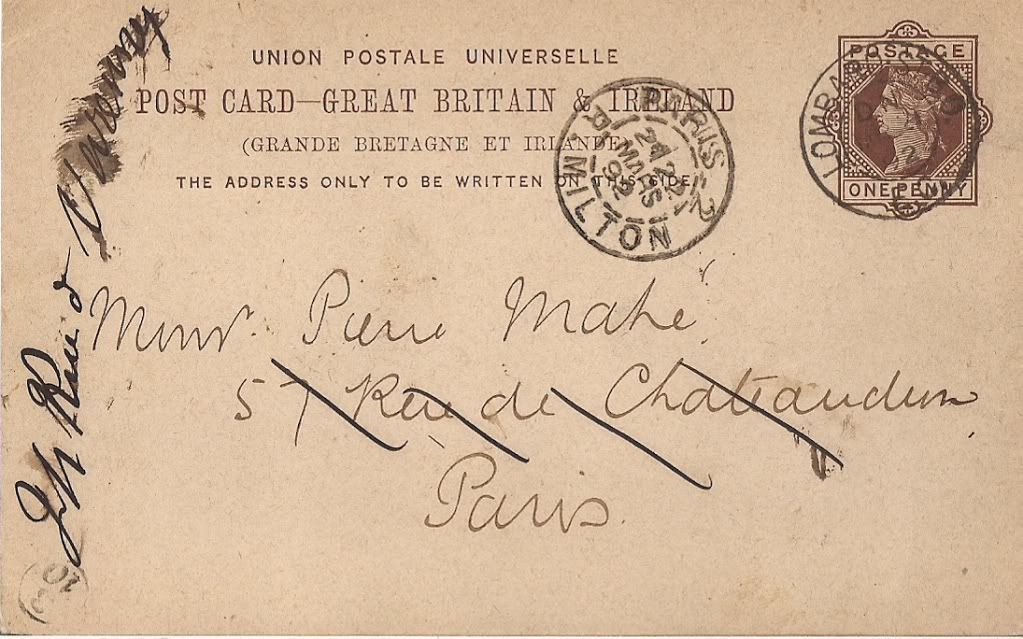 UNION POSTALE UNIVERSELLE
POST CARD—GREAT BRITAIN & IRELAND
(GRANDE BRETAGNE ET IRLANDE)
THE ADDRESS ONLY TO BE WRITTEN ON THIS SIDE.
POSTAGE
ONE PENNY
LOMBARD
PARIS
MARS
92
R. MILTON
Monsr. Pierre Mahé
57 Rue de Chateaudun
Paris.
Rue d